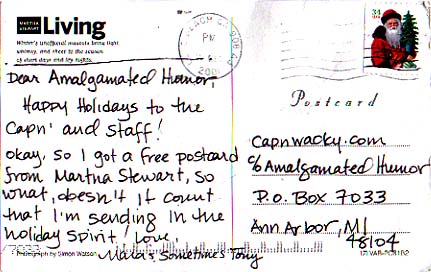 MARTHA
STEWART
Living
Winter's unofficial mascots bring light
whimsy, and cheer to the season
of short days and icy nights.
Dear Amalgamated Humor,
Happy Holidays to the
Capn' and Staff!
okay, so I got a free postcard
from Martha Stewart, so
what, doesn't it count
that I'm sending in the
holiday spirit! Love,
Mara's Sometimes Tony
Photograph by Simon Watson
PM
34
Postcard
Capnwacky.com
c/o Amalgamated Humor
P.O. Box 7033
Ann Arbor, MI
48104